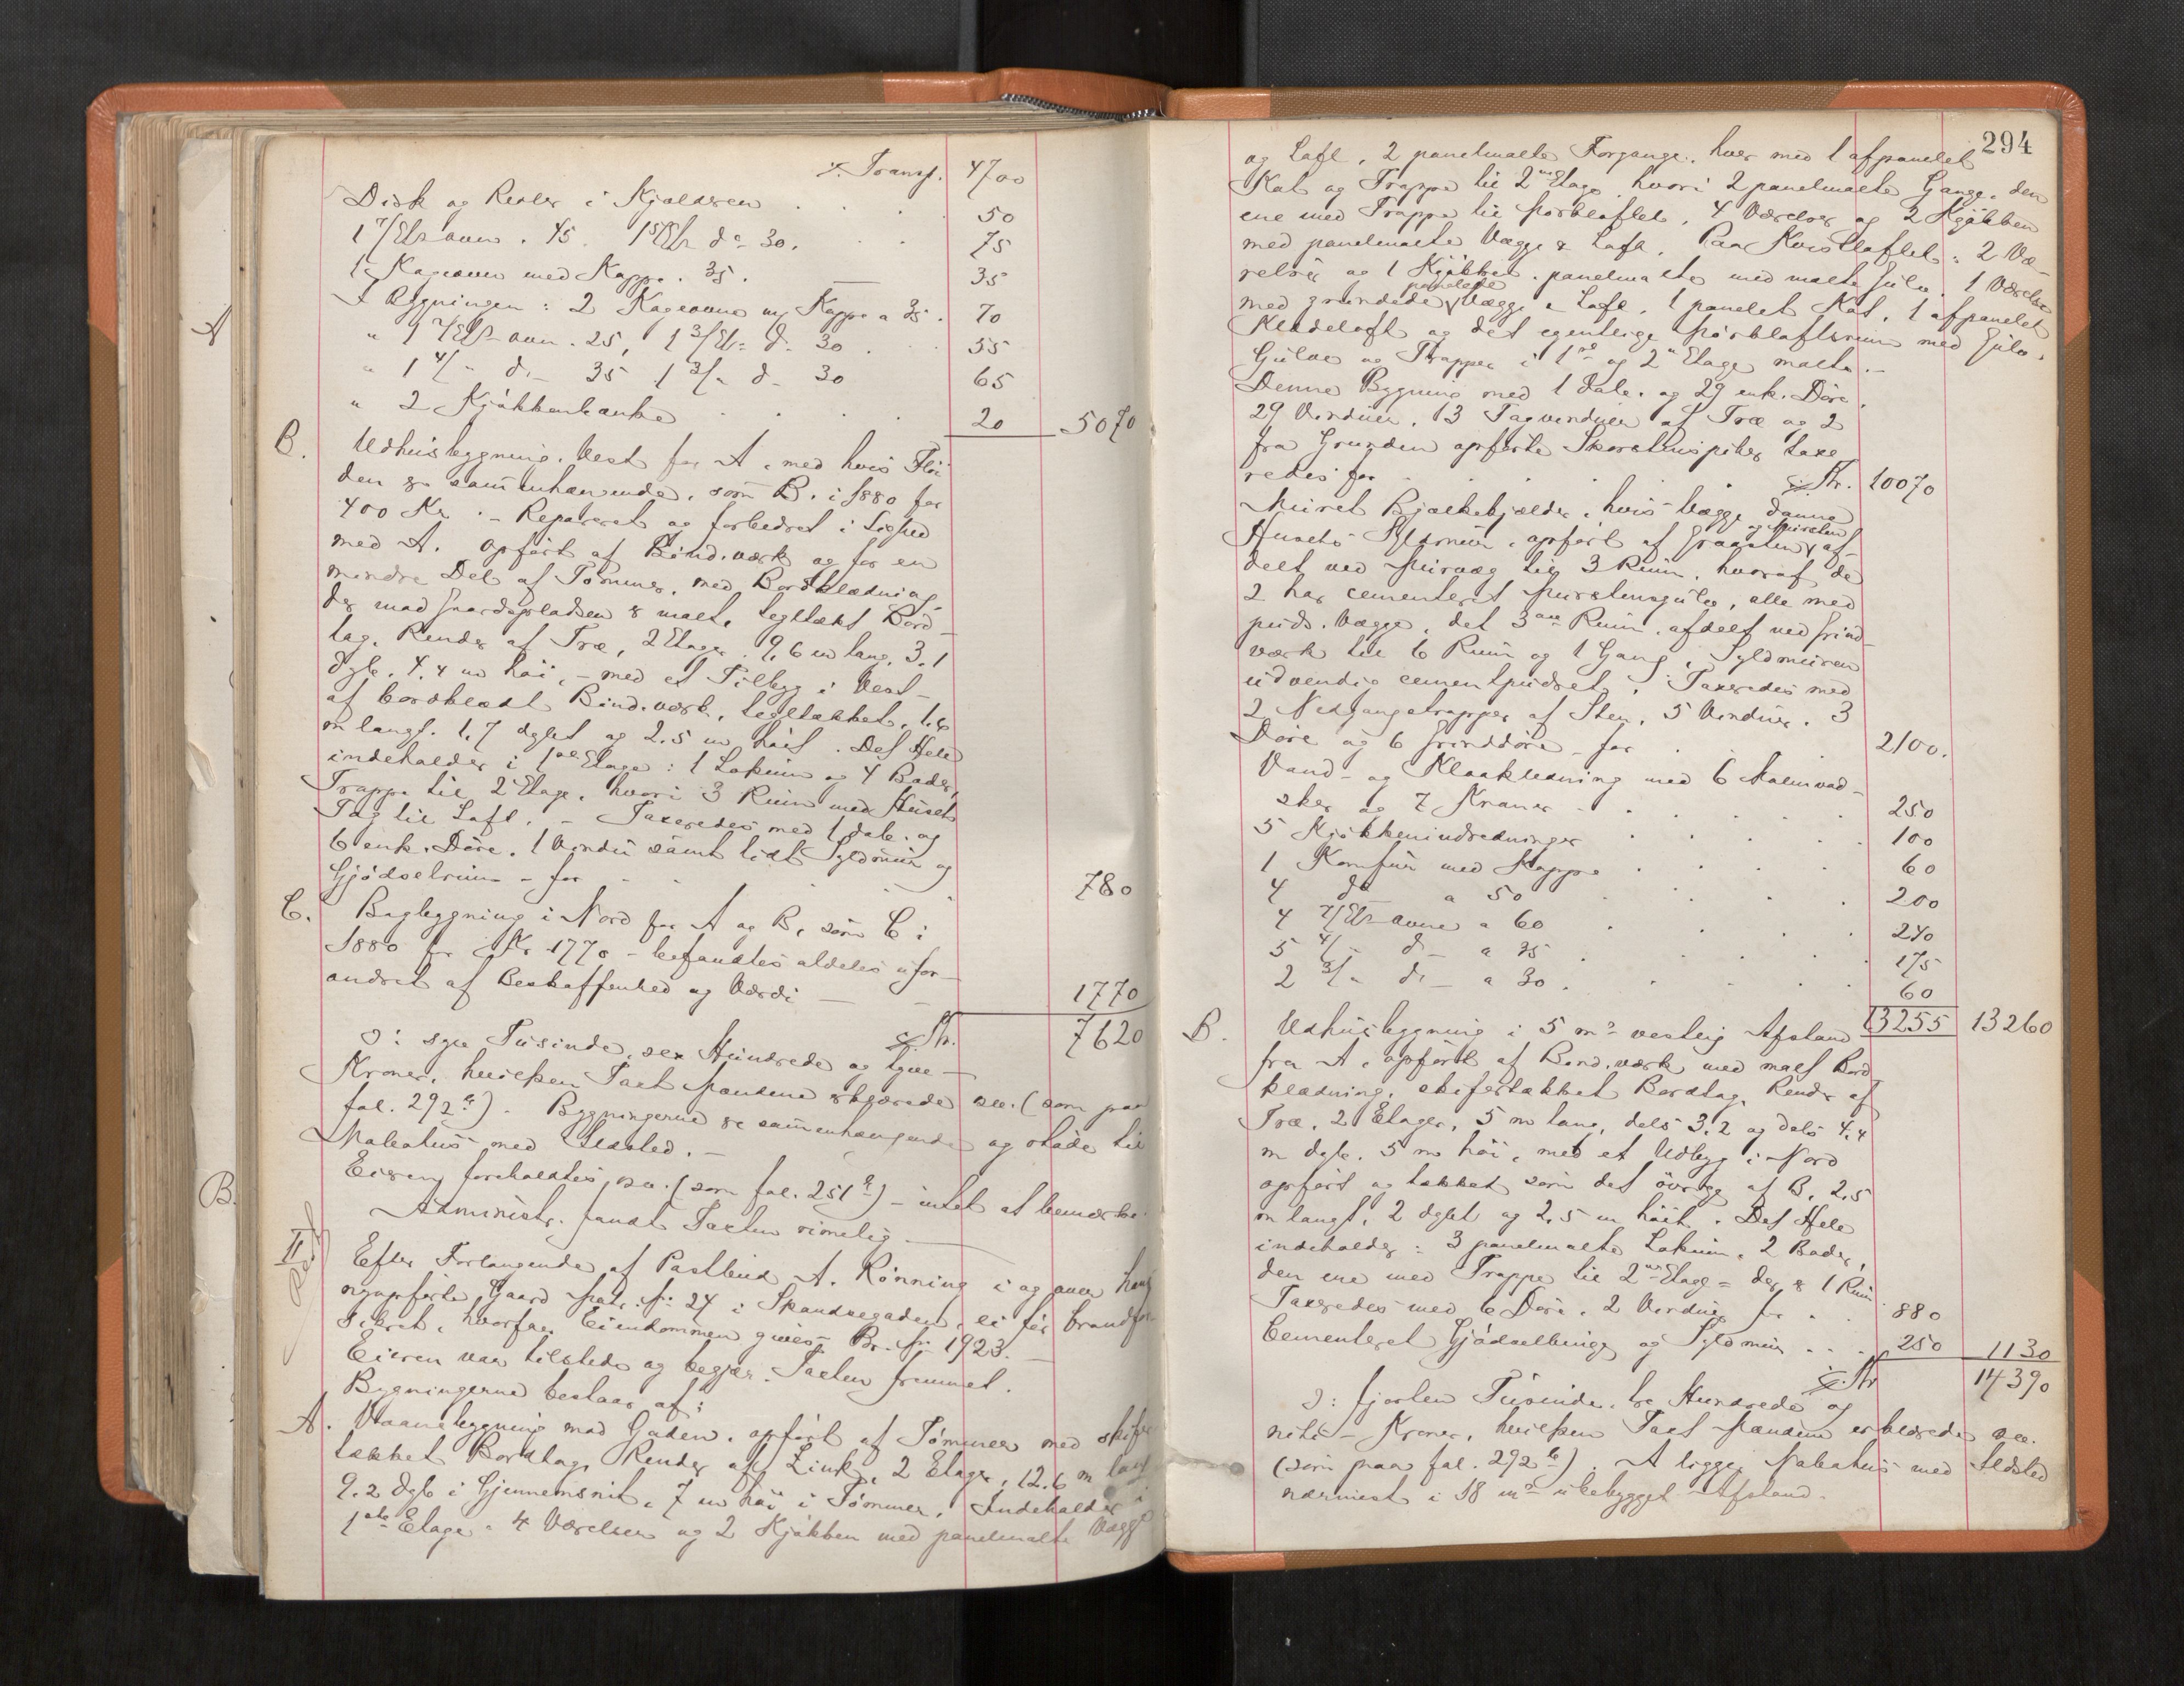 Transp. 4700
Disk og Reoler i Kjælderen . . . 50
1 7/Etsovn. 45. 1 5/Ets do 30. . . 75
1 Kageovn med Kappe. 35. — 35
I Bygningen: 2 Kageovne m/ Kappe a 35. 70
" 1 2/Ets-ovn. 25, 1 3/Ets d. 30 . . 55
" 1 4/" d. 35 1 3/" d. 30 65
" 2 Kjøkkenbænke . . . . 20 5070
B. Udhusbygning, Vest for A, med hvis Flöi
den er sammenhængende, som B. i 1880 for
400 Kr. - Repareret og forbedret i Lighed
med A. Opført af Bind.værk og for en
mindre Del af Tømmer, med Bordklædning,
der mod Gaardspladsen er malt, tegltækt Bord-
tag, Render af Træ, 2 Etager. 9,6 m lang, 3.1
dyb, 4.4 m höi, - med et Tilbyg i Vest -
af bordklædt Bind.værk, tegltækket, 1,6
m langt. 1,7 dybt og 2.5 m höit. Det Hele
indeholder i 1ste Etage: 1 Lokum og 4 Boder,
Trappe til 2 Etage, hvori 3 Rum med Husets
Tag til Loft. - Taxeredes med 1 dob. og
6 enk. Döre, 1 Vindu samt lidt Syldmur og
Gjödselrum - for - - . . 780
C. Bagbygning i Nord for A og B, som C i
1880 for Kr 1770 - befandtes aldeles ufor-
andret af Beskaffenhed og Værdi — - 1770
Kr. 7620
ↄ: syv Tusinde, sex Hundrede og tyve -
Kroner, hvilken Taxt Mændene erklærede osv. (som paa
fol. 292 a). Bygningerne er sammenhængende og stöder til
Nabohus med Ildsted. -
Eieren foreholdtes, osv. (som fol. 251 a) - intet at bemærke.
Administr. fandt Taxten rimelig —
II Efter Forlangende af Postbud A. Rønning i og over hans
nyopførte Gaard Matr. No 24 i Skandsegaden, ei før brandfor-
sikret, hvorfor Eiendommen gives Br. No 1923. —
Eieren var tilstede og begjær. Taxten fremmet.
Bygningerne bestaar af:
A. Vaaningsbygning mod Gaden, opført af Tømmer med skifer
tækket Bordtag, Render af Zink, 2 Etager, 12.6 m lang
9.2 dyb i Gjennemsnit, 7 m höi i Tømmer, Indeholder i
1ste Etage: 4 Værelser og 2 Kjøkken med panelmalte Vægge
294
og Loft, 2 panelmalte Forgange, hver med 1 afpanelet
Kot og Trappe til 2den Etage, hvori 2 panelmalte Gange, den
ene med Trappe til Mørkloftet, 4 Værelser og 2 Kjøkken
med panelmalte Vægge & Loft. Paa Kvistloftet: 2 Væ-
relser og 1 Kjøkken, panelmalte med malte Gulv. 1 Værelse
med grundede panelede Vægge & Loft, 1 panelet Kot, 1 afpanelet
Klædeloft og det egentlige Mørkloftsrum med Gulv.
Gulve og Trapper i 1ste og 2n Etage malte. -
Denne Bygning med 1 dob. og 29 enk. Döre,
29 Vinduer, 13 Tagvinduer af Træ og 2
fra Grunden opførte Skorstenspiber taxe
redes for . . . . . Kr. 10070
Muret Bjælkekjælder, hvis Vægge danne
Husets Syldmur, opført af Graasten og Mursten, af-
delt ved Murvæg til 3 Rum, hvoraf de
2 har cementeret Murstensgulv, alle med
puds. Vægge, det 3die Rum, afdelt ved Grind
værk til 6 Rum og 1 Gang, Syldmuren
udvendig cementpudset. Taxeredes med
2 Nedgangstrapper af Sten, 5 Vinduer, 3
Döre og 6 Grinddöre - for . . . 2100.
Vand- og Kloakledning med 6 Malmvad-
sker og 7 Kraner . . . . . 250
5 Kjøkkenindredninger . . . . 100
1 Komfur med Kappe . . . . 60
4 do a 50 . . . . 200
4 2/Ets ovne a 60 . . . . 240
5 4/" d. a 35 . . . . 175
2 3/" d. a 30 . . . . 60
13255 13260
B. Udhusbygning i 5 m's vestlig Afstand
fra A, opført af Bind.værk med malt Bord
klædning, skifertækket Bordtag, Render af
Træ, 2 Etager, 5 m lang, dels 3.2 og dels 4.4
m dyb, 5 m höi, med et Udbyg i Nord
opført og tækket som det övrige af B, 2,5
m langt, 2 dybt og 2,5 m höit. Det Hele
indeholder: 3 panelmalte Lokum, 2 Boder,
den ene med Trappe til 2den Etage - der er 1 Rum.
Taxeredes med 6 Döre, 2 Vinduer for . . 880
Cementeret Gjödselbinge og Syldmur . . . 250 1130
Kr 14390
ↄ: fjorten Tusinde, tre Hundrede og
nitti - Kroner, hvilken Taxt Mændene erklærede osv.
(som paa fol. 292 b). A ligger Nabohus med Ildsted
nærmest i 18 m's ubebygget Afstand.
A
B.